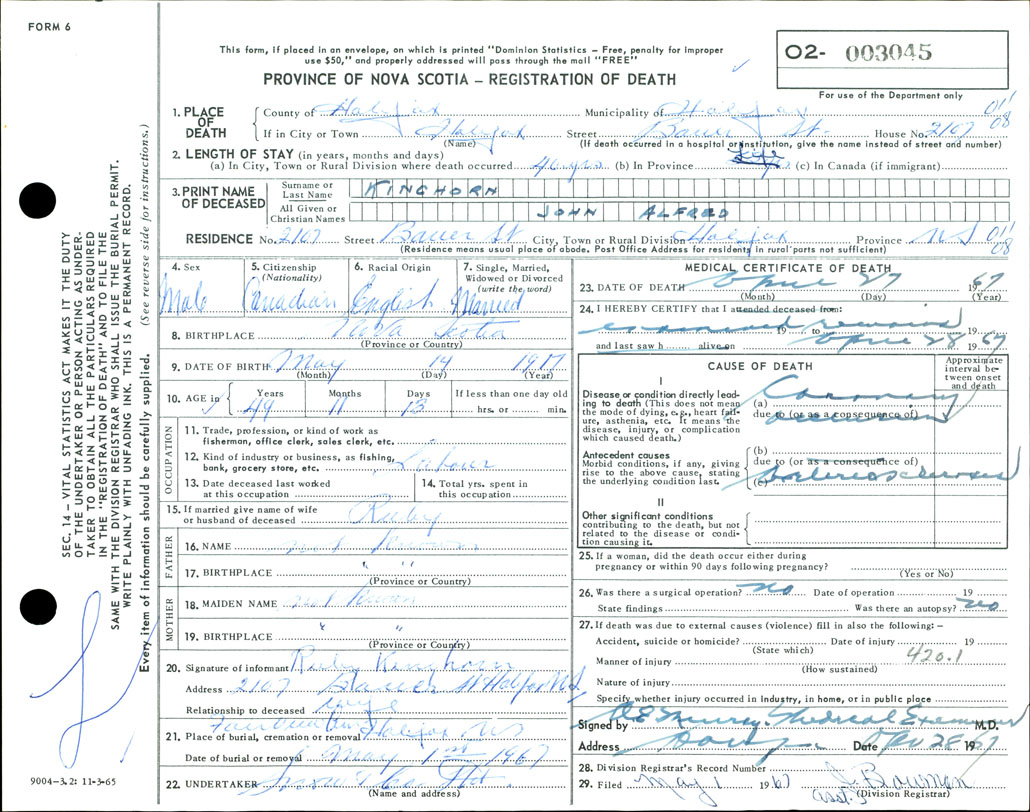 FORM 6
This form, if placed in an envelope, on which is printed "Dominion Statistics – Free, penalty for improper
use $50," and properly addressed will pass through the mail "FREE"
PROVINCE OF NOVA SCOTIA – REGISTRATION OF DEATH
O2- 003045
For use of the Department only
SEC. 14 – VITAL STATISTICS ACT MAKES IT THE DUTY
OF THE UNDERTAKER OR PERSON ACTING AS UNDER-
TAKER TO OBTAIN ALL THE PARTICULARS REQUIRED
IN THE "REGISTRATION OF DEATH" AND TO FILE THE
SAME WITH THE DIVISION REGISTRAR WHO SHALL ISSUE THE BURIAL PERMIT.
WRITE PLAINLY WITH UNFADING INK. THIS IS A PERMANENT RECORD.
Every item of information should be carefully supplied. (See reverse side for instructions.)
1. PLACE OF DEATH
County of Halifax Municipality of Halifax 011/08
If in City or Town Halifax Street Bauer St. House No. 2107
(Name) (If death occurred in a hospital or institution, give the name instead of street and number)
2. LENGTH OF STAY (in years, months and days)
(a) In City, Town or Rural Division where death occurred 40 yrs (b) In Province (c) In Canada (if immigrant)
3. PRINT NAME OF DECEASED
Surname or Last Name KINGHORN
All Given or Christian Names JOHN ALFRED
RESIDENCE No. 2107 Street Bauer St City, Town or Rural Division Halifax Province NS 011/08
(Residence means usual place of abode. Post Office Address for residents in rural parts not sufficient)
4. Sex Male
5. Citizenship (Nationality) Canadian
6. Racial Origin English
7. Single, Married, Widowed or Divorced (write the word) Married
8. BIRTHPLACE Nova Scotia
(Province or Country)
9. DATE OF BIRTH May 14 1917
(Month) (Day) (Year)
10. AGE in Years Months Days If less than one day old
49 11 13 hrs. or min.
OCCUPATION
11. Trade, profession, or kind of work as
fisherman, office clerk, sales clerk, etc.
12. Kind of industry or business, as fishing,
bank, grocery store, etc. Labourer
13. Date deceased last worked
at this occupation
14. Total yrs. spent in
this occupation
15. If married give name of wife
or husband of deceased Ruby
FATHER
16. NAME not known
17. BIRTHPLACE " "
(Province or Country)
MOTHER
18. MAIDEN NAME not known
19. BIRTHPLACE " "
(Province or Country)
20. Signature of informant Ruby Kinghorn
Address 2107 Bauer St Halifax NS
Relationship to deceased wife
21. Place of burial, cremation or removal Fairview Halifax NS
Date of burial or removal May 1st 1967
22. UNDERTAKER
(Name and address)
9004–3.2: 11-3-65
MEDICAL CERTIFICATE OF DEATH
23. DATE OF DEATH April 27 1967
(Month) (Day) (Year)
24. I HEREBY CERTIFY that I attended deceased from:
examined 19 to April 28 19
and last saw h alive on 1967
CAUSE OF DEATH
Approximate interval between onset and death
I
Disease or condition directly leading to death (This does not mean the mode of dying, e.g., heart failure, asthenia, etc. It means the disease, injury, or complication which caused death.)
(a) Coronary
due to (or as a consequence of)
occlusion
Antecedent causes
Morbid conditions, if any, giving rise to the above cause, stating the underlying condition last.
(b)
due to (or as a consequence of)
(c) arteriosclerosis
II
Other significant conditions
contributing to the death, but not related to the disease or condition causing it.
25. If a woman, did the death occur either during
pregnancy or within 90 days following pregnancy?
(Yes or No)
26. Was there a surgical operation? no Date of operation 19
State findings Was there an autopsy? no
27. If death was due to external causes (violence) fill in also the following: –
Accident, suicide or homicide? Date of injury 19
(State which)
Manner of injury 420.1
(How sustained)
Nature of injury
Specify whether injury occurred in Industry, in home, or in public place
Signed by Murray Medical Examiner M.D.
Address Date Apr 28 1967
28. Division Registrar's Record Number
29. Filed May 1 1967 J. Bowman
(asst.) (Division Registrar)